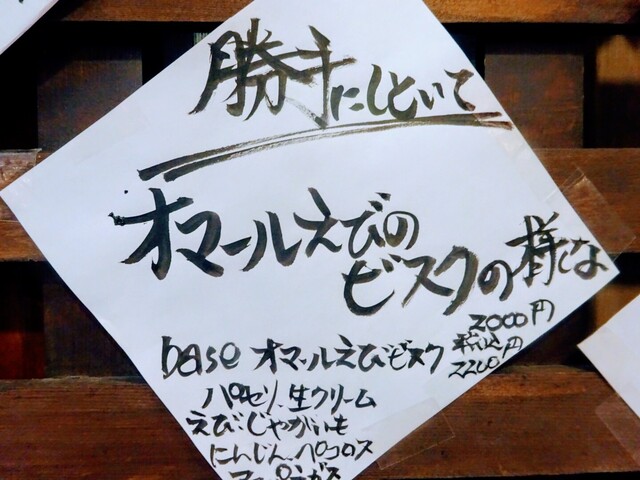 勝手にしといて
オマールえびの
ビスクの様な
2000円
税込2200円
base オマールえびビスク
パセリ、生クリーム
えび、じゃがいも
にんじん、ペコロス
アスパラガス